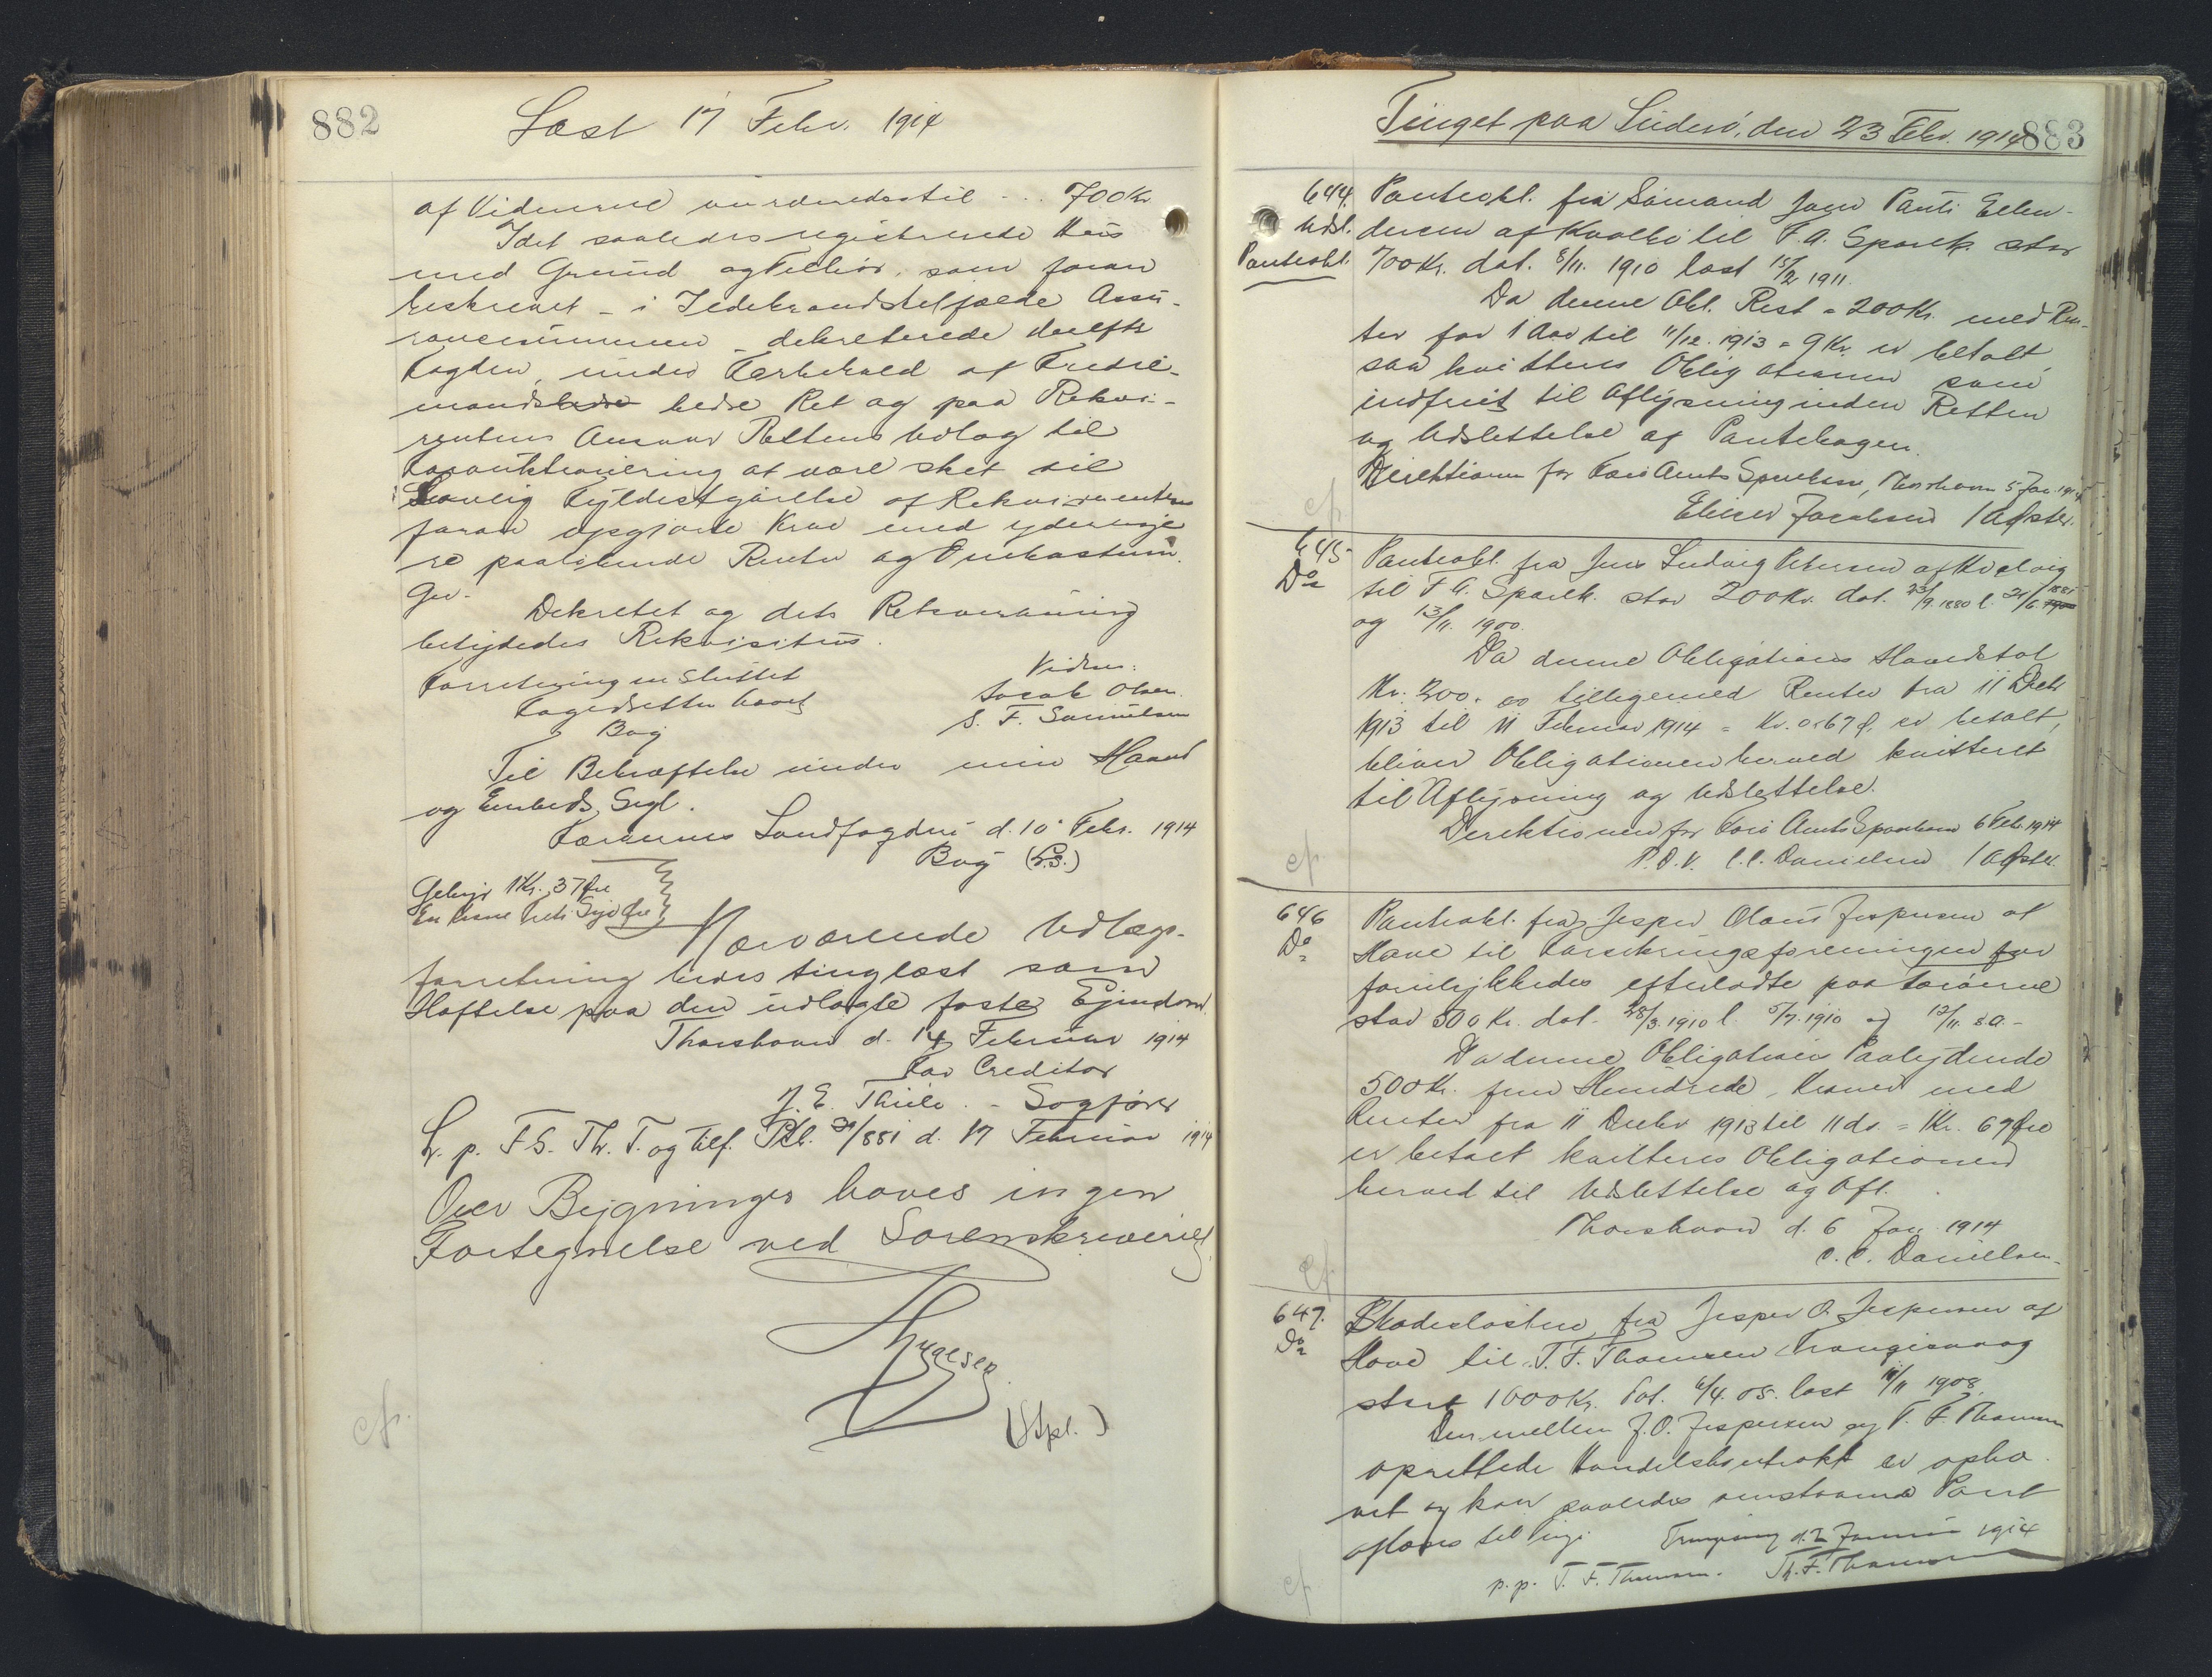 882
Læst 17 Febr. 1914
af Vidnerne vurderedes til ... 700 Kr
Idet saaledes registrerede Hus
med Grund og Tilhør, som foran
beskrevet - i Ildebrandstilfælde Assu-
rancesummen - dekreterede derefter
Fogden, under Forbehold af Tredie-
mands bedre Ret og paa Rekvi-
rentens Ansvar Rettens Udlæg til
at være sket til
Lovlig Fyldestgjørelse af Rekvirentens
foran opgjorte Krav med ydermere
re paaløbende Renter og Omkostnin-
ger.
Dekretet og dets Retsvirkning
betydedes Rekvisitus.
Forretningen sluttet
Fogedretten hævet
Bug
Vidner:
Jacob Olsen.
S. F. Samuelsen
Til Bekræftelse under min Haand
og Embeds Segl.
Færøernes Landfogderi d. 10 Febr. 1914
Bug (L.S.)
Gebyr 1 Kr. 37 Øre
En Krone Treti Syv Øre
Nærværende Udlægs-
forretning bedes tinglæst som
Hæftelse paa den udlagte faste Ejendom.
Thorshavn d. 14 Februar 1914
For Creditor
J. E. Thiile. - Sagfører
L. p. F.S. Th. T. og Tilf. Ptl. 881 d. 17 Februar 1914
Over Bygninger haves ingen
Fortegnelse ved Sorenskriveriet
(Stpl.)
cf.
Tinget paa Suderø, den 23 Febr. 1914
883
644.
Udsl.
Panteobl.
Panteobl. fra Sømand Joen Pauli Ellen-
dersen af Kvalbø til F.A. Spark. stor
700 Kr. dat. 8/11. 1910 læst 15/2 1911.
Da denne Obl. Rest = 200 Kr. med Ren-
ter for 1 Aar til 11/12. 1913 = 9 Kr. er betalt,
saa kvitteres Obligationen som
indfriet til Aflysning inden Retten
og Udslettelse af Pantebogen.
Direktionen for Færø Amts Sparekasse, Thorshavn 5 Jan. 1914
Jacobsen / A Øster.
cf.
645
Do
Panteobl. fra Jens Ludvig Petersen af Hvalvig
til F.A. Spark. stor 200 Kr. dat. 23/9. 1880 l. 21/6 1881
og 13/11. 1900.
Da denne Obligations Hovedstol
Kr. 200,00 tilligemed Renter fra 11 Decbr
1913 til 11 Februar 1914 = Kr. 0.67 Ø. er betalt,
bliver Obligationen herved kvitteret
til Aflysning og Udslettelse.
Direktionen for Færø Amts Sparekasse 6 Febr. 1914
P.D.V. C.C. Danielsen / A Øster.
cf.
646
Do
Panteobl. fra Jesper Olaus Jespersen af
Hove til Forsikringsforeningen for
forulykkedes efterladte paa Færøerne
stor 500 Kr. dat. 28/3. 1910 l. 5/7. 1910 og 12/11. s.a. -
Da denne Obligation Paalydende
500 Kr. fem Hundrede Kroner med
Renter fra 11 Decbr 1913 til 11 ds. = 1 Kr. 67 Øre
er betalt kvitteres Obligationen
herved til Udslettelse og Afl.
Thorshavn d. 6 Jan 1914
C. C. Danielsen.
cf.
647.
Do
Skadesløsbrev fra Jesper O. Jespersen af
Hove til T. F. Thomsen Trangisvaag
stort 1000 Kr. dat. 6/4. 05. læst 11/11 1908.
Den mellem J. O. Jespersen og T. F. Thomsen
oprettede Handelskontrakt er ophæ-
vet og kan saaledes omstaaende Pant
aflæses til Tinge. d. 2 Januar 1914
p.p. T. F. Thomsen. Th. F. Thomsen
cf.